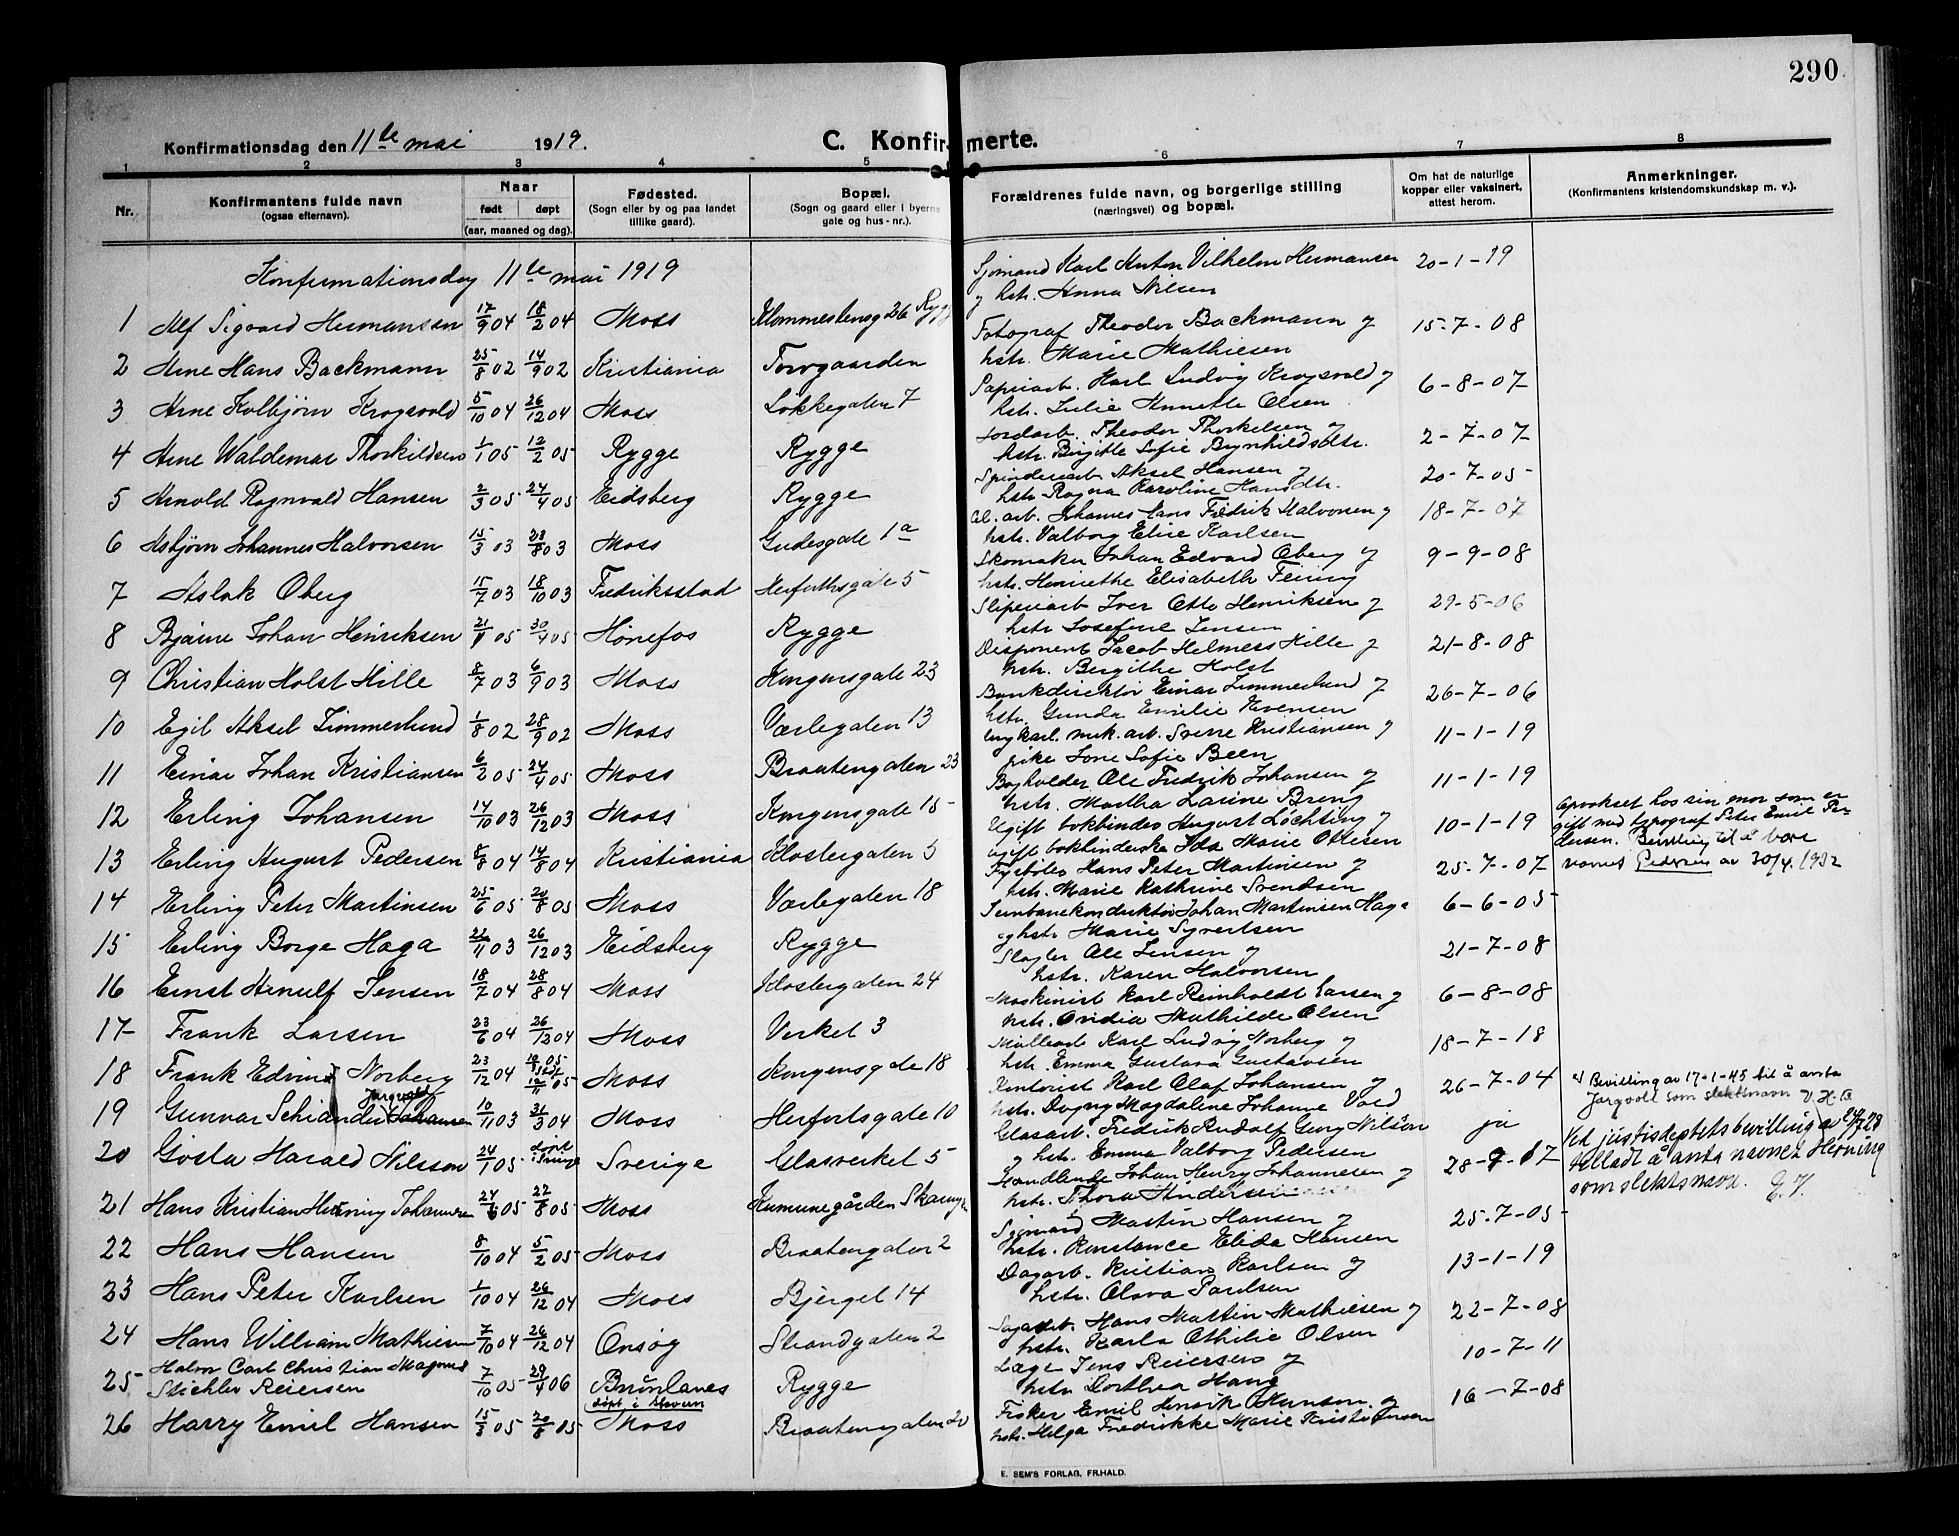 290
Konfirmationsdag den 11te mai 1919.
C. Konfirmerte.
1 2 3 4 5 6 7 8
Nr.
Konfirmantens fulde navn
(ogsaa efternavn).
Naar
født døpt
(aar, maaned og dag).
Fødested.
(Sogn eller by og paa landet
tillike gaard).
Bopæl.
(Sogn og gaard eller i byerne
gate og hus-nr.).
Forældrenes fulde navn, og borgerlige stilling
(næringsvei) og bopæl.
Om hat de naturlige
kopper eller vaksinert,
attest herom.
Anmerkninger.
(Konfirmantens kristendomskundskap m. v.).
Konfirmationsdag 11te mai 1919
1 Alf Sigvard Hermansen 17/9 04 18/2 04 Moss 26 Rygge
Sjømand Karl Anton Vilhelm Hermansen 20-1-19
og hstr. Anna Nilsen
2 Arne Hans Backmann 25/8 02 14/9 02 Kristiania Torvgaarden
Fotograf Theodor Backmann og 15-7-08
hstr. Marie Mathiesen
3 Arne Kolbjørn Krogsvold 5/10 04 26/12 04 Moss Løkkegaten 7
Papirarb. Karl Ludvig Krogsvold og 6-8-07
hstr. Julie Annette Olsen
4 Arne Waldemar Thorkildsen 1/1 05 12/2 05 Rygge Rygge
Jordarb. Theodor Thorkelsen og 2-7-07
hstr. Birgitte Sofie Brynhildsdtr.
5 Arnold Ragnvald Hansen 2/3 05 24/4 05 Eidsberg Rygge
Spinderiarb Aksel Hansen og 20-7-05
hstr Ragna Karoline Hansdtr.
6 Asbjørn Johannes Halvorsen 15/3 03 23/8 03 Moss Gudesgate 1a
arb. Johannes Hans Fredrik Halvorsen og 18-7-07
hstr. Valborg Elise Karlsen
7 Aslak Oberg 15/7 03 18/10 03 Fredriksstad Herforthsgate 5
Skomaker Johan Edvard Oberg og 9-9-08
hstr. Henriethe Elisabeth Feiring
8 Bjarne Johan Henriksen 21/1 05 30/4 05 Hønefos Rygge
Sliperiarb Iver Otto Henriksen og 29-5-06
hstr Josefine Jensen
9 Christian Holst Hille 8/7 03 6/9 03 Moss Kongensgate 23
Disponent Jacob Helmers Hille og 21-8-08
hstr. Bergithe Holst
10 Egil Aksel Zimmerlund 1/8 02 28/9 02 Moss Værlegaten 13
Bankdirektør Einar Zimmerlund og 26-7-06
hstr. Gunda Emilie Evensen
11 Einar Johan Kristiansen 6/2 05 24/4 05 Moss Braatengaten 23
Ungkarl. mek. arb. Sverre Kristiansen og 11-1-19
pike Jone Sofie Been
12 Erling Johansen 14/10 03 26/12 03 Moss Kongensgate 15
Bogholder Ole Fredrik Johansen og 11-1-19
hstr. Martha Larine Breng
13 Erling August Pedersen 8/8 04 14/8 04 Kristiania Klostergaten 5
Ugift bokbinder August Løchting og 10-1-19
ugift bokbinderske Ida Marie Ottesen
Opvokset hos sin mor som er
gift med typograf Peter Emil Pe-
dersen. Bevilling til å bære
navnet Pedersen av 30/4. 1932
14 Erling Peter Martinsen 25/6 05 20/8 05 Moss Værlegaten 18
Fyrbøter Hans Peter Martinsen og 25-7-07
hstr. Marie Kathrine Svendsen
15 Erling Borge Haga 22/11 03 26/12 03 Eidsberg Rygge
Jernbanekonduktør Johan Martinsen Haga 6-6-05
og hstr Marie Syvertsen
16 Ernst Arnulf Jensen 18/7 04 28/8 04 Moss Klostergaten 24
Slagter Ole Jensen og 21-7-08
hstr. Karen Halvorsen
17 Frank Larsen 23/6 04 26/12 04 Moss Verket 3
Maskinist Karl Reinholdt Larsen og 6-8-08
hstr. Ovidia Mathilde Olsen
18 Frank Edvin Norberg 23/12 04 Moss Kongensgate 18
Møllearb Karl Ludvig Norberg og 18-7-18
hstr. Emma Gustava Gustavsen
19 Gunnar Schiander Johansen 10/11 03 31/3 04 Moss Herfortsgate 10
Jargvoll
Kontorist Karl Olaf Johansen og 26-7-04
hstr. Dagny Magdalene Johanne Vold
x) Bevilling av 17-1-45 til å anta
Jargvoll som slektsnavn
20 Gösta Harald Nilsson 24/1 05 døpt i Sverige Sverige Glasverket 5
Glasarb. Fredrik Rudolf Georg Nilsön ja
og hstr. Emma Valborg Pedersen
21 Hans Kristian Herning Johannesen 24/6 05 27/8 05 Moss Kumunegården
Handlende Johan Henry Johannesen og 28-7-17
hstr. Thora Andersen
Ved justisdeptets bevilling av
tilladt å anta navnet Herning
som slektsnavn.
22 Hans Hansen 8/10 04 5/2 05 Moss Braatengaten 2
Sjømand Martin Hansen og 25-7-05
hstr. Konstance Elida Hansen
23 Hans Peter Karlsen 1/10 04 26/12 04 Moss Bjerget 14
Dagarb. Kristian Karlsen og 13-1-19
hstr. Olava Paulsen
24 Hans William Mathiesen 7/10 04 26/12 04 Onsøy Strandgaten 2
Sagarb. Hans Martin Mathiesen og 22-7-08
hstr. Karla Othilie Olsen
25 Halvor Carl Christian Magnus
Stichler Reiersen 7/10 05 29/4 06 Brunlanes Rygge
døpt i Stavern
Læge Jens Reiersen og 10-7-11
hstr Dorthea Hang
26 Harry Emil Hansen 15/3 05 20/8 05 Moss Braatengaten 20
Fisker Emil Henrik Hansen og 16-7-08
hstr. Helga Fredrikke Marie Kristoffersen
E. SEM'S FORLAG, FR.HALD.